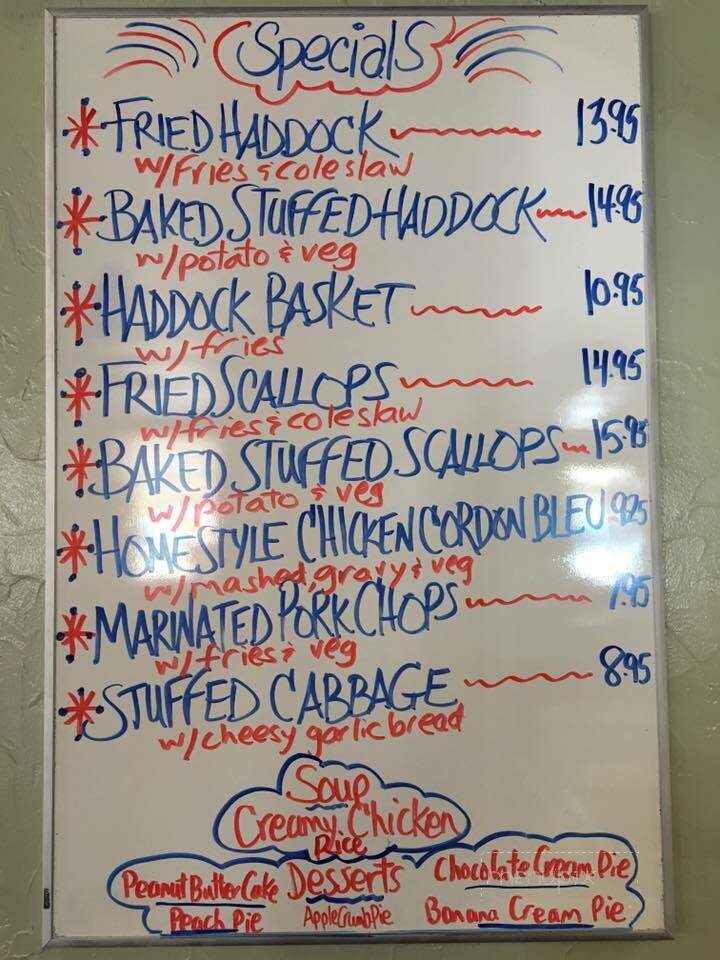 Specials
FRIED HADDOCK 13.95
w/fries & coleslaw
BAKED STUFFED HADDOCK 14.95
w/potato & veg
HADDOCK BASKET 10.95
w/fries
FRIED SCALLOPS 14.95
w/fries & coleslaw
BAKED STUFFED SCALLOPS 15.95
w/potato & veg
HOMESTYLE CHICKEN CORDON BLEU 9.25
w/mashed, gravy & veg
MARINATED PORK CHOPS 7.95
w/fries & veg
STUFFED CABBAGE 8.95
w/cheesy garlic bread
Soup
Creamy Chicken
Rice
Desserts
Peanut Butter Cake
Chocolate Cream Pie
Peach Pie
Apple Crumb Pie
Banana Cream Pie